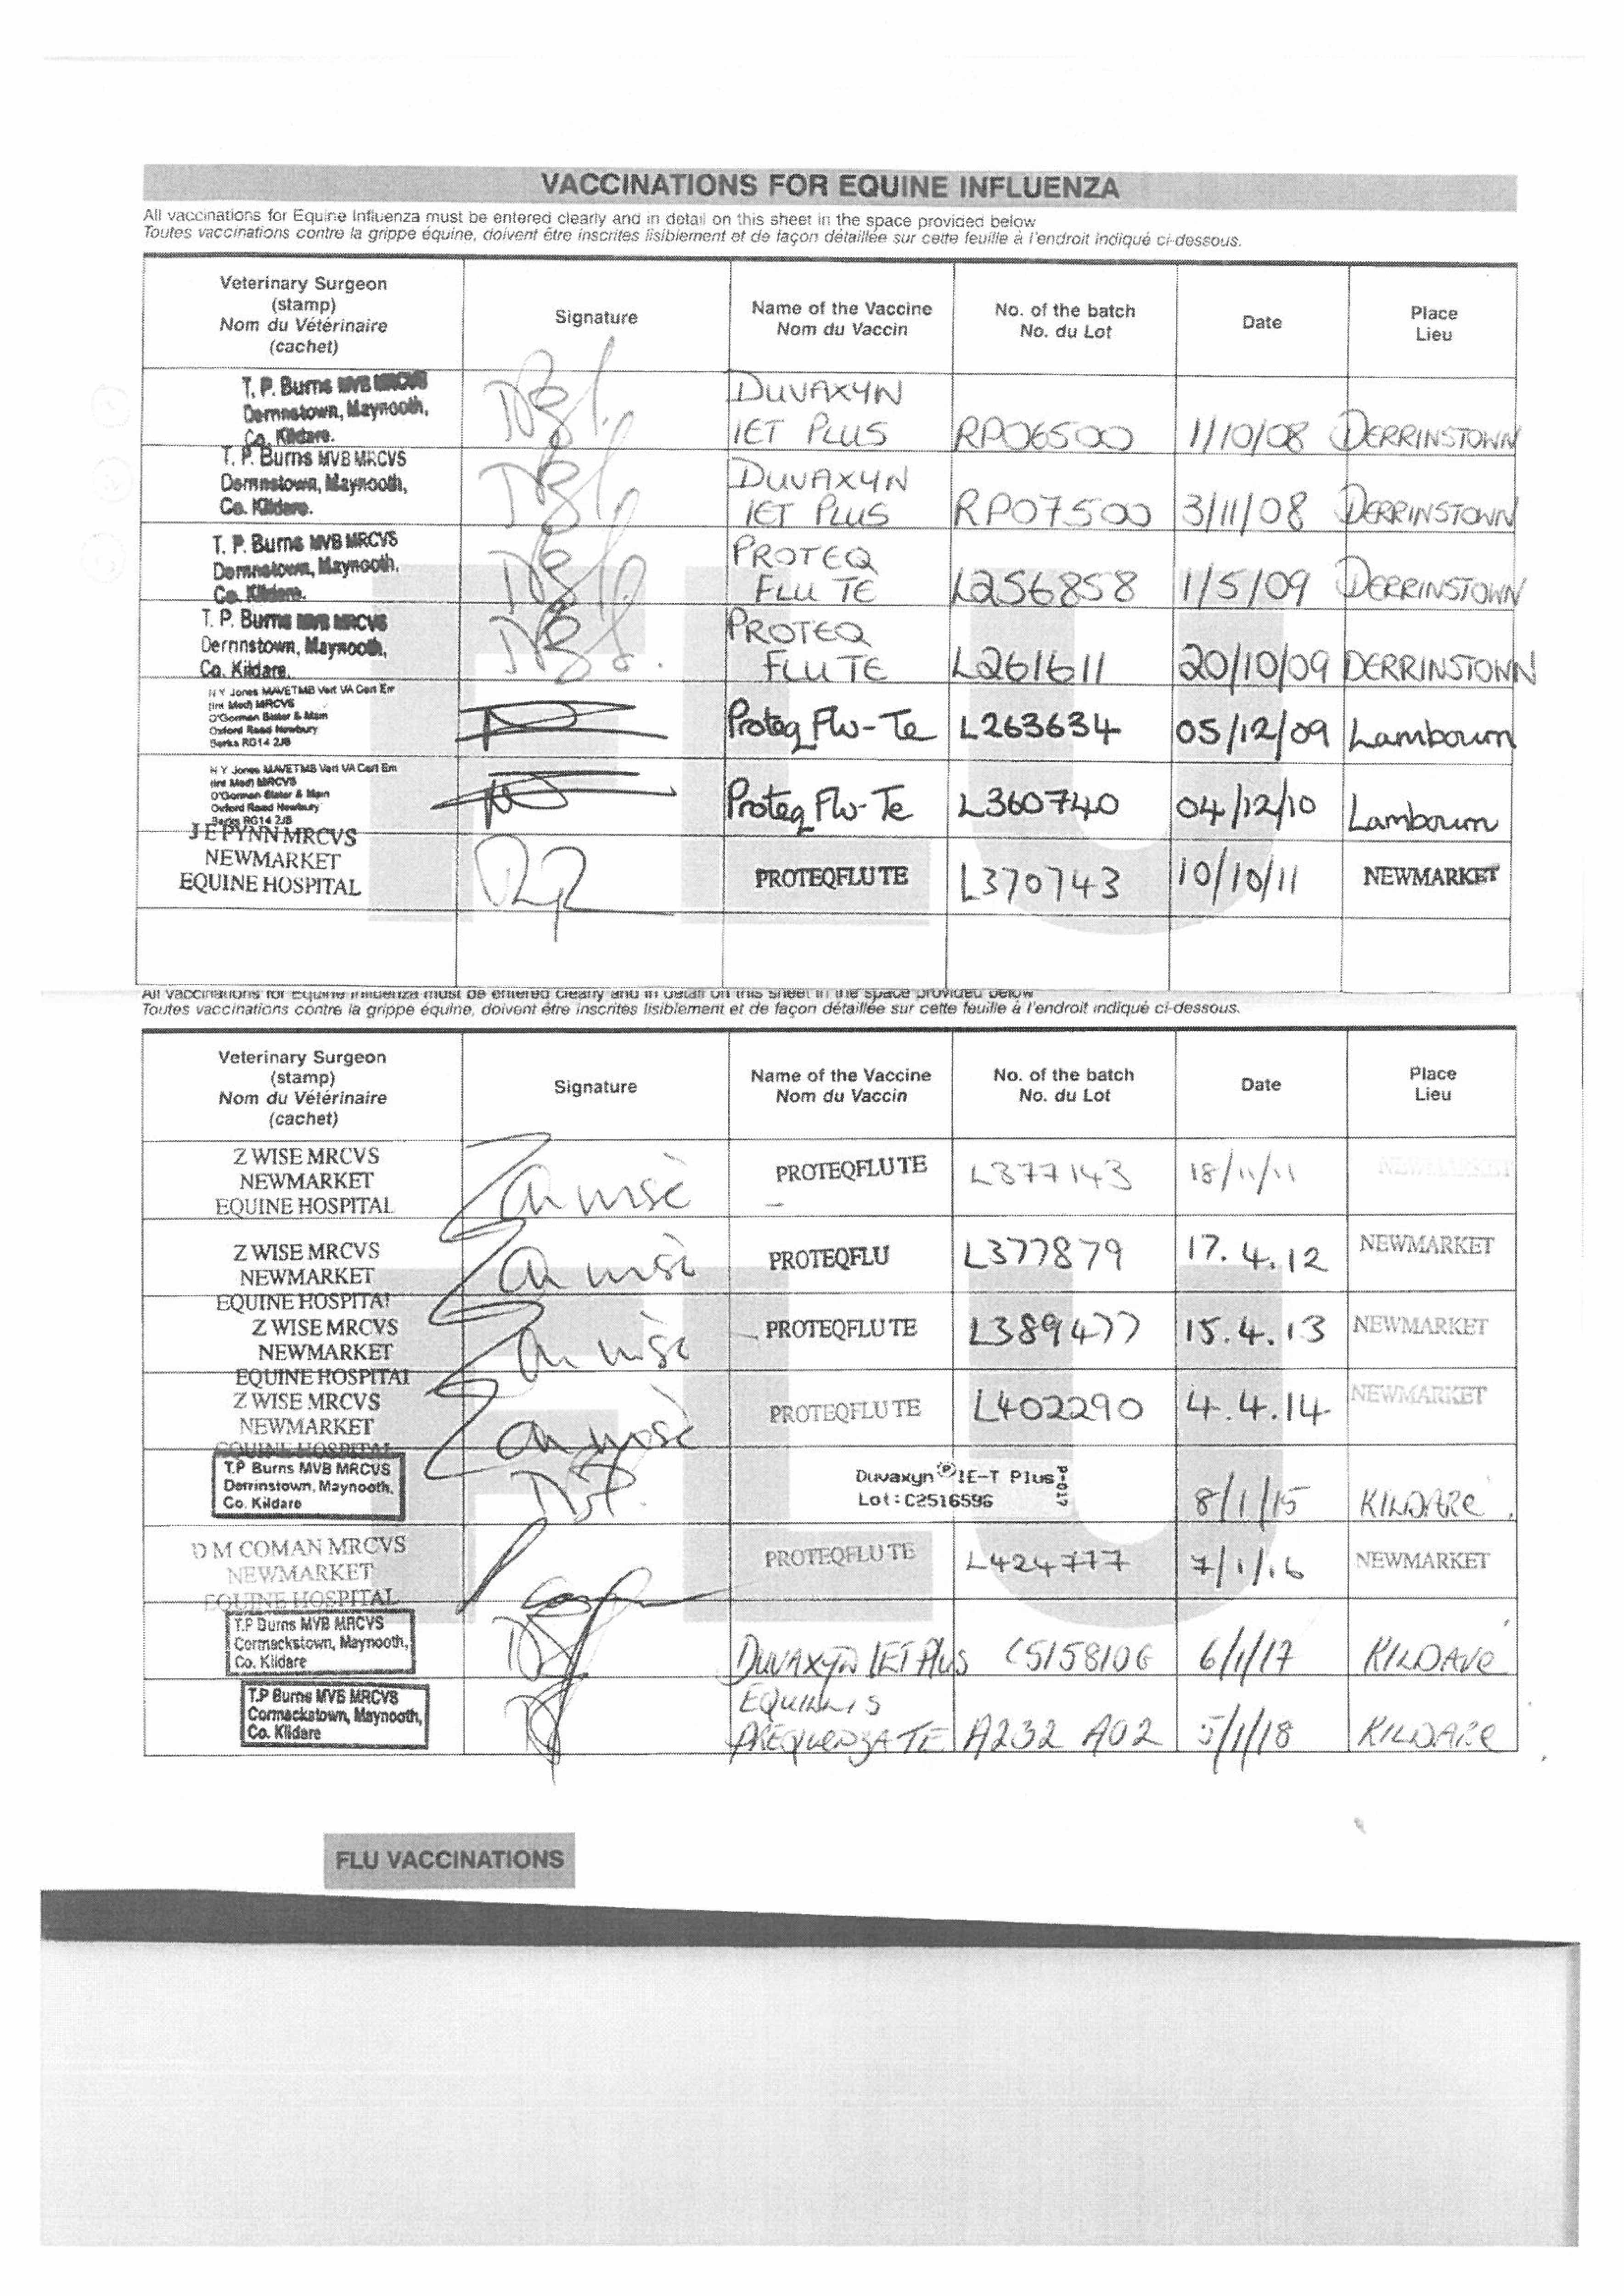 VACCINATIONS FOR EQUINE INFLUENZA
All vaccinations for Equine Influenza must be entered clearly and in detail on this sheet in the space provided below
Toutes vaccinations contre la grippe équine, doivent être inscrites lisiblement et de façon détaillée sur cette feuille à l'endroit indiqué ci-dessous.
Veterinary Surgeon
(stamp)
Nom du Vétérinaire
(cachet)
Signature
Name of the Vaccine
Nom du Vaccin
No. of the batch
No. du Lot
Date
Place
Lieu
T. P. Burns MVB MRCVS
Derrinstown, Maynooth,
Co. Kildare.
DUVAXYN
IET PLUS
RP06500
1/10/08
DERRINSTOWN
T. P. Burns MVB MRCVS
Derrinstown, Maynooth,
Co. Kildare.
DUVAXYN
IET PLUS
RP07500
3/11/08
DERRINSTOWN
T. P. Burns MVB MRCVS
Derrinstown, Maynooth,
Co. Kildare.
PROTEQ
FLU TE
L256858
1/5/09
DERRINSTOWN
T. P. Burns MVB MRCVS
Derrinstown, Maynooth,
Co. Kildare.
PROTEQ
FLU TE
L261611
20/10/09
DERRINSTOWN
N Y Jones MAVETMB Vert VA Cert Em
(Int Med) MRCVS
O'Gorman Slater & Main
Oxford Road Newbury
Berks RG14 2JB
Proteq Flu-Te
L263634
05/12/09
Lambourn
N Y Jones MAVETMB Vert VA Cert Em
(Int Med) MRCVS
O'Gorman Slater & Main
Oxford Road Newbury
Berks RG14 2JB
Proteq Flu-Te
L360740
04/12/10
Lambourn
J E PYNN MRCVS
NEWMARKET
EQUINE HOSPITAL
PROTEQFLU TE
L370743
10/10/11
NEWMARKET
FLU
All vaccinations for Equine Influenza must be entered clearly and in detail on this sheet in the space provided below
Toutes vaccinations contre la grippe équine, doivent être inscrites lisiblement et de façon détaillée sur cette feuille à l'endroit indiqué ci-dessous.
Veterinary Surgeon
(stamp)
Nom du Vétérinaire
(cachet)
Signature
Name of the Vaccine
Nom du Vaccin
No. of the batch
No. du Lot
Date
Place
Lieu
Z WISE MRCVS
NEWMARKET
EQUINE HOSPITAL
PROTEQFLU TE
L377143
18/11/11
NEWMARKET
Z WISE MRCVS
NEWMARKET
EQUINE HOSPITAL
PROTEQFLU
L377879
17.4.12
NEWMARKET
Z WISE MRCVS
NEWMARKET
EQUINE HOSPITAL
PROTEQFLU TE
L389477
15.4.13
NEWMARKET
Z WISE MRCVS
NEWMARKET
EQUINE HOSPITAL
PROTEQFLU TE
L402290
4.4.14
NEWMARKET
T.P Burns MVB MRCVS
Derrinstown, Maynooth,
Co. Kildare
Duvaxyn IE-T Plus
Lot: C251659G
8/1/15
KILDARE
D M COMAN MRCVS
NEWMARKET
EQUINE HOSPITAL
PROTEQFLU TE
L424777
7/1/16
NEWMARKET
T.P Burns MVB MRCVS
Cormackstown, Maynooth,
Co. Kildare
DUVAXYN IET Plus
C515810G
6/1/17
KILDARE
T.P Burns MVB MRCVS
Cormackstown, Maynooth,
Co. Kildare
EQUILIS
PREQUENZA TE
A232 A02
5/1/18
KILDARE
FLU
FLU VACCINATIONS